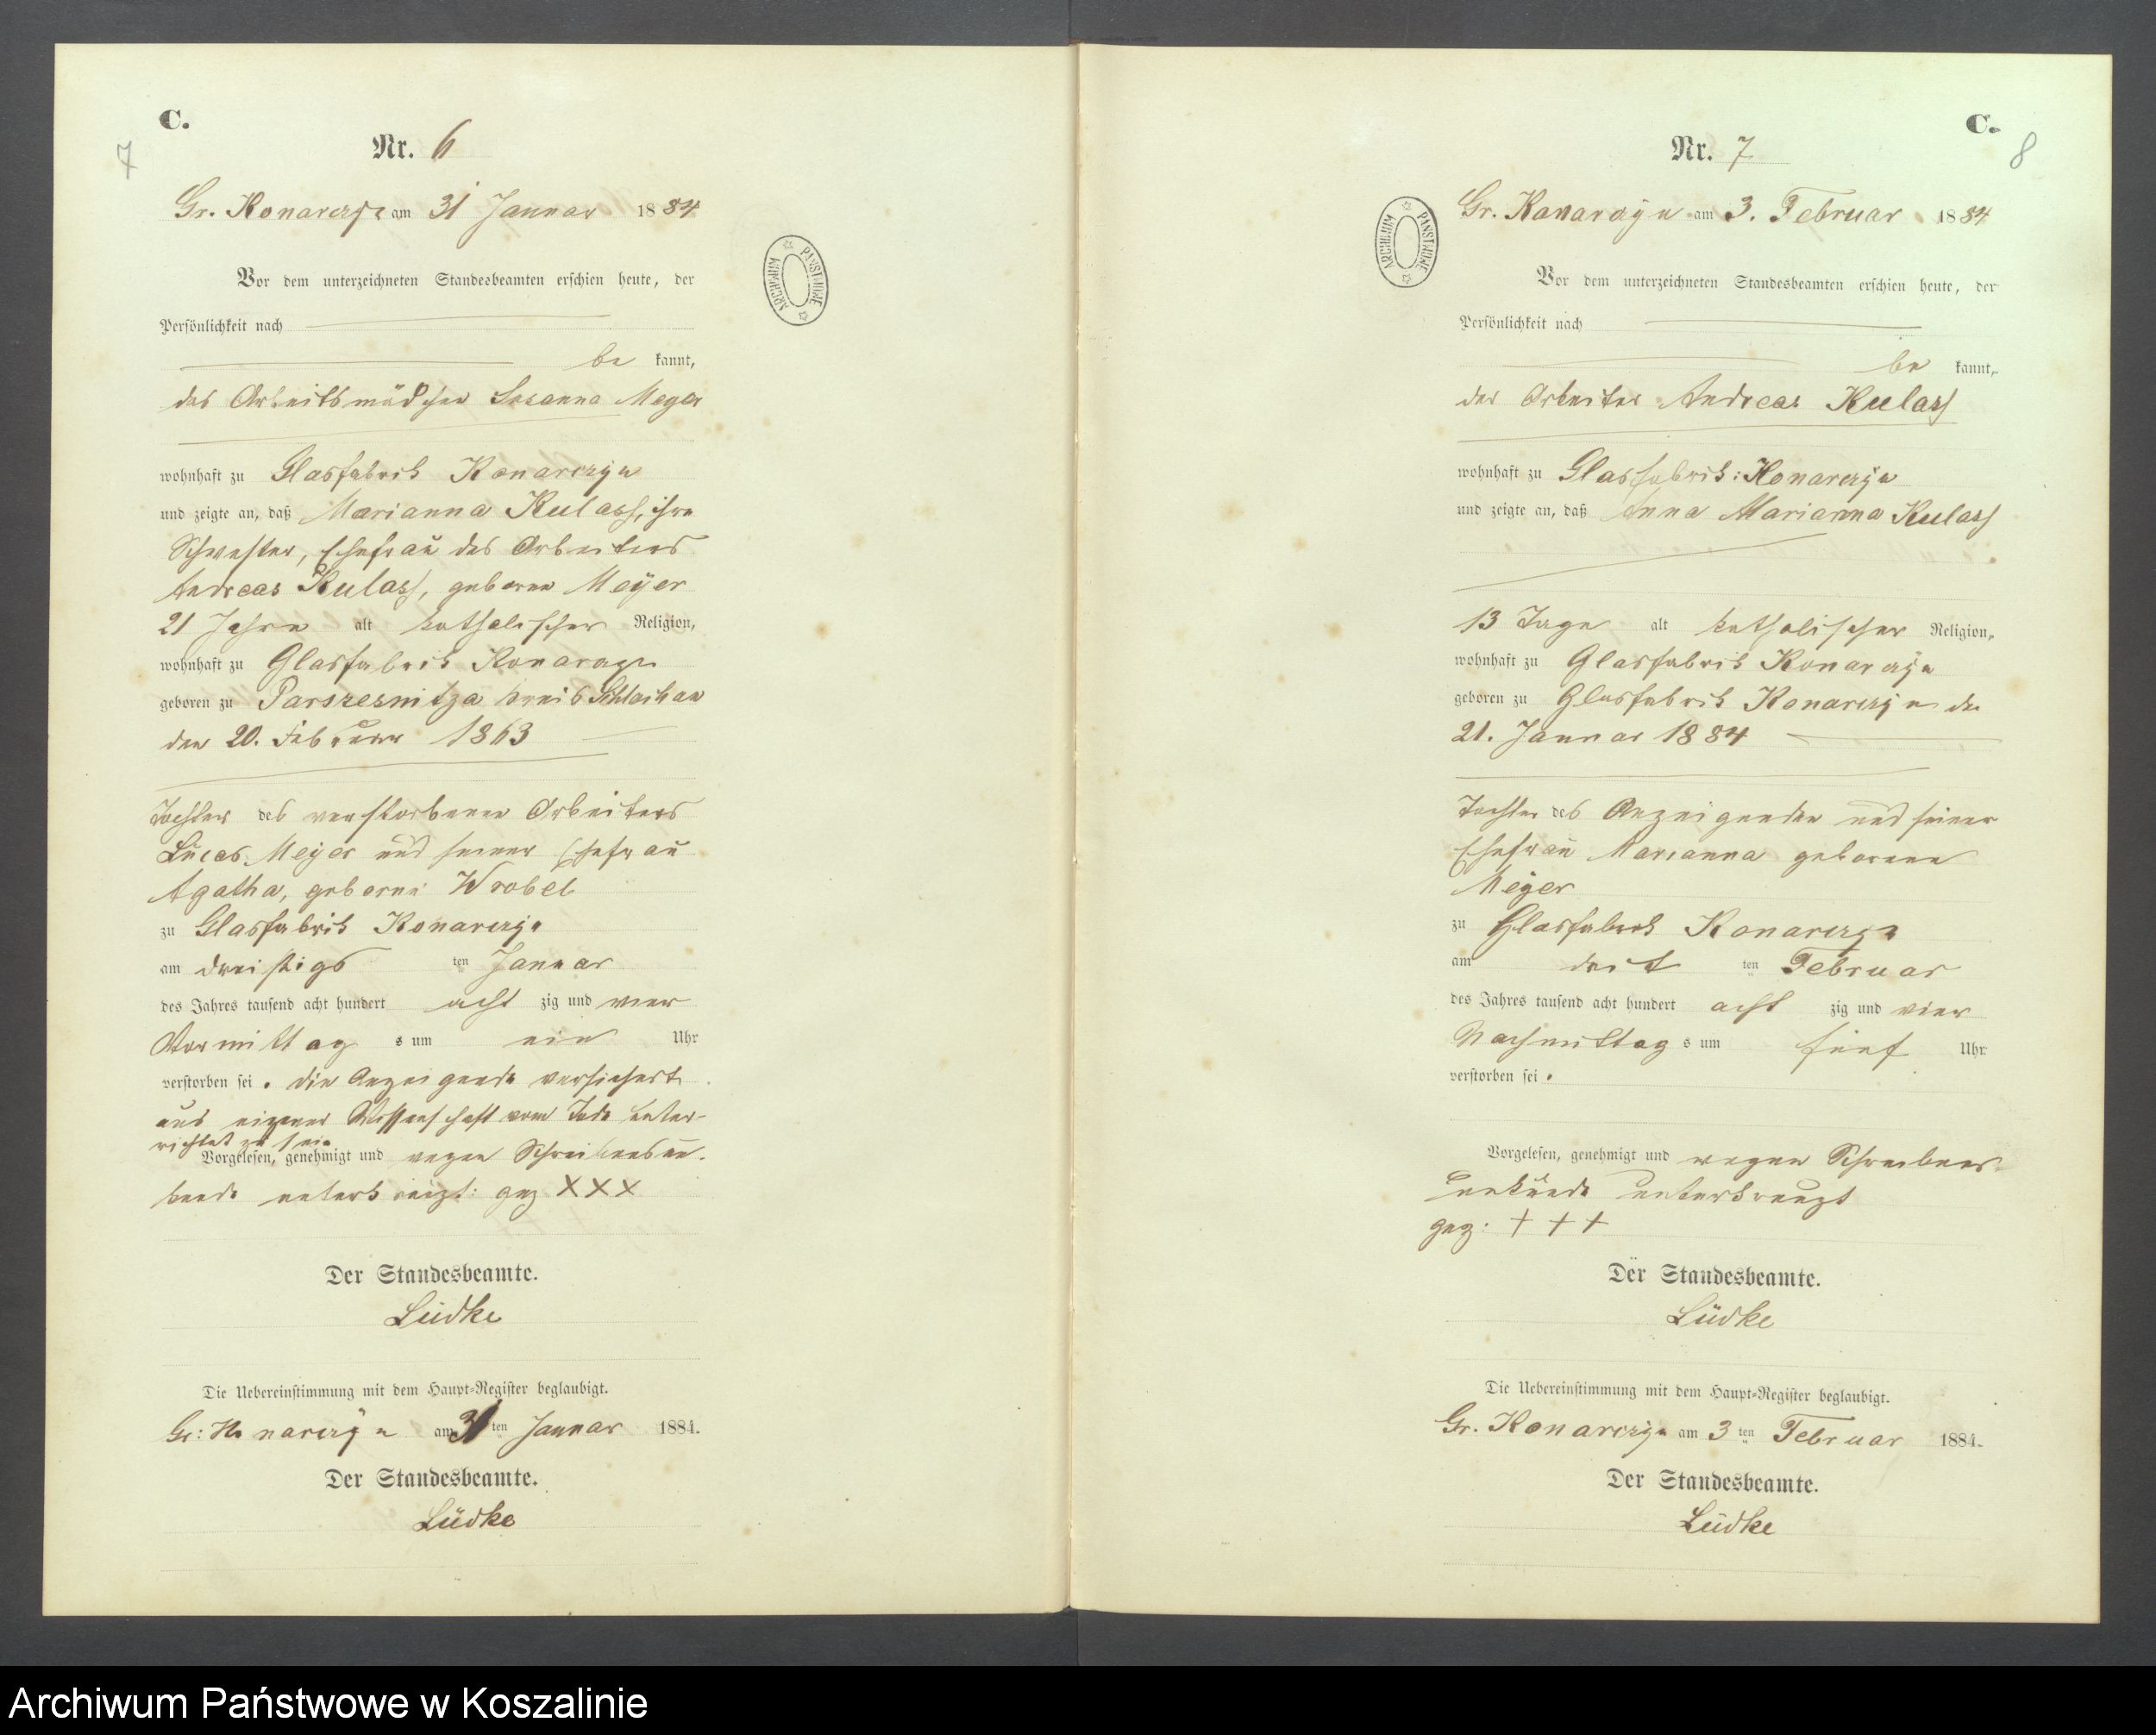 C.
7
Nr. 6
Gr. Konarczyn am 31 Januar 1884
Vor dem unterzeichneten Standesbeamten erschien heute, der
Persönlichkeit nach
be kannt,
das Arbeitsmädchen Susanna Meyer
wohnhaft zu Glasfabrik Konarczyn
und zeigte an, daß Marianna Kulass, ihre
Schwester, Ehefrau des Arbeiters
Andreas Kulass, geborene Meÿer
21 Jahre alt katholischer Religion,
wohnhaft zu Glasfabrik Konarczyn
geboren zu Parszesnitza Kreis Schlochau
den 20. Februar 1863
Tochter des verstorbenen Arbeiters
Lucas Meÿer und seiner Ehefrau
Agatha, geborne Wrobel
zu Glasfabrik Konarczyn
am dreißigs ten Januar
des Jahres tausend acht hundert acht zig und vier
Vormittag s um ein Uhr
verstorben sei. die Anzeigende versichert
aus eigener Wissenschaft vom Tode unter-
richtet zu sein
Vorgelesen, genehmigt und wegen Schreibensun-
kunde unterkreuzt: gez XXX
Der Standesbeamte.
Lüdke
Die Uebereinstimmung mit dem Haupt-Register beglaubigt.
Gr: Konarczÿn am 31 ten Januar 1884.
Der Standesbeamte.
Lüdke
ARCHIWUM PAŃSTWOWE
C.
8
Nr. 7
Gr. Konarczÿn am 3. Februar 1884
Vor dem unterzeichneten Standesbeamten erschien heute, der
Persönlichkeit nach
be kannt,
der Arbeiter Andreas Kulass
wohnhaft zu Glasfabrik: Konarczÿn
und zeigte an, daß Anna Marianna Kulass
13 Tage alt katholischer Religion,
wohnhaft zu Glasfabrik Konarczÿn
geboren zu Glasfabrik Konarczyn den
21. Januar 1884
Tochter des Anzeigenden und seiner
Ehefrau Marianna geborene
Meÿer
zu Glasfabrik Konarczyn
am drit ten Februar
des Jahres tausend acht hundert acht zig und vier
Nachmittag s um fünf Uhr
verstorben sei.
Vorgelesen, genehmigt und wegen Schreibens-
unkunde unterkreuzt
gez: + + +
Der Standesbeamte.
Lüdke
Die Uebereinstimmung mit dem Haupt-Register beglaubigt.
Gr. Konarczyn am 3 ten Februar 1884.
Der Standesbeamte.
Lüdke
ARCHIWUM PAŃSTWOWE
Archiwum Państwowe w Koszalinie